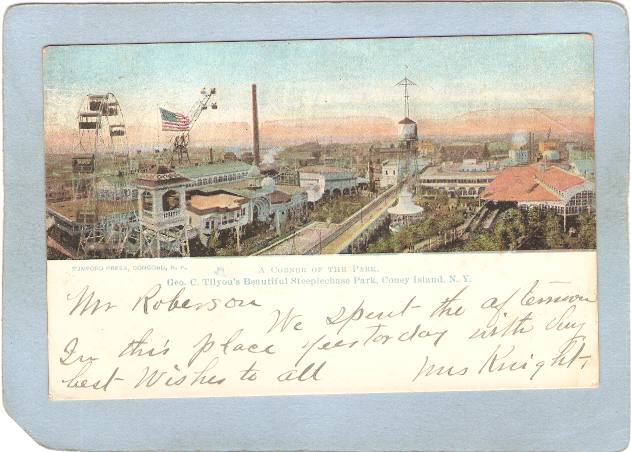 RUMFORD PRESS, CONCORD, N. H.
A CORNER OF THE PARK.
Geo. C. Tilyou's Beautiful Steeplechase Park, Coney Island, N. Y.
Mr Roberson
We spent the afternoon
In this place yesterday with
best Wishes to all Mrs Knight,